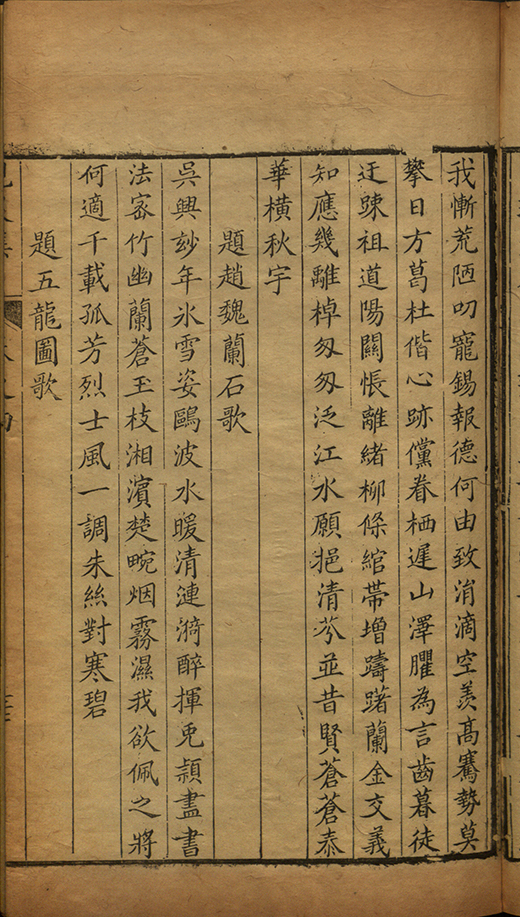 我慚荒陋叨寵錫報德何由致涓滴空羡高騫勢莫
攀日方葛杜偕心跡儻眷栖遲山澤臞為言齒暮徒
迂踈祖道陽關悵離緒柳條綰帶增躊躇蘭金交義
知應幾離棹匆匆泛江水願挹清芬並昔賢蒼蒼泰
華橫秋宇
題趙魏蘭石歌
吳興玅年氷雪姿鷗波水暖清漣漪醉揮兎頴畫書
法宻竹幽蘭蒼玉枝湘濱楚畹烟霧濕我欲佩之將
何適千載孤芳烈士風一調朱絲對寒碧
題五龍圖歌